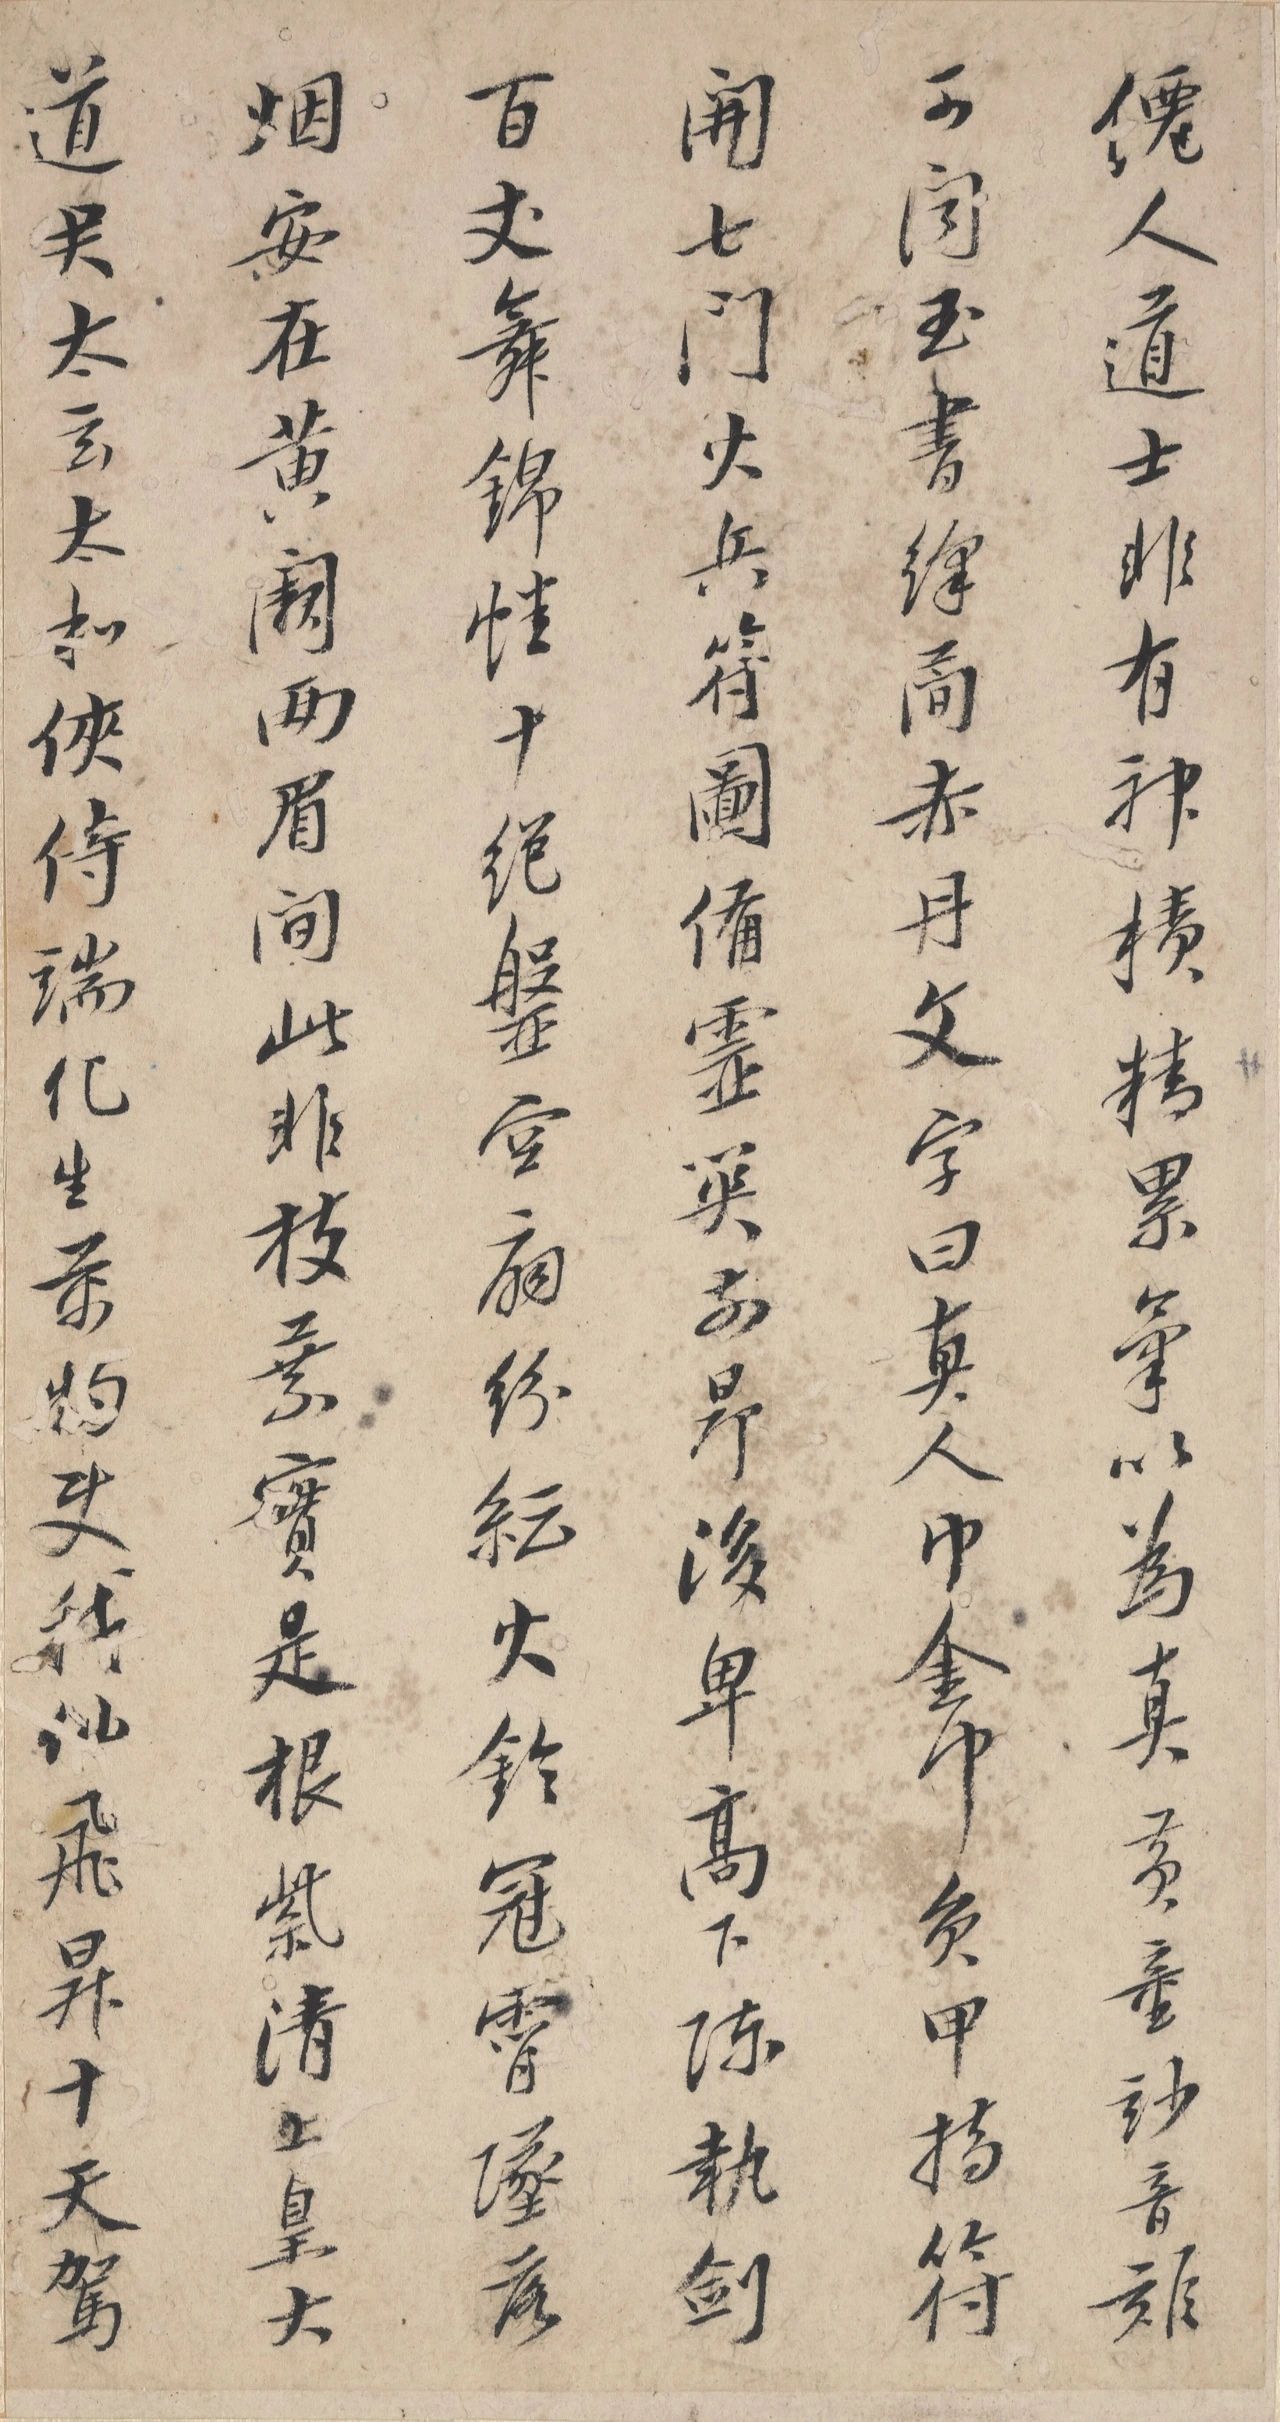 僊人道士非有神積精累氣以為真黃童妙音難
可聞玉書絳簡赤丹文字曰真人巾金巾負甲持符
開七門火兵符圖備靈關前昂後卑高下陳執劍
百丈舞錦幡十絕盤空扇紛紜火鈴冠霄墜落
烟安在黃闕兩眉間此非枝葉實是根紫清上皇大
道君太玄太和俠侍端化生萬物使我仙飛昇十天駕